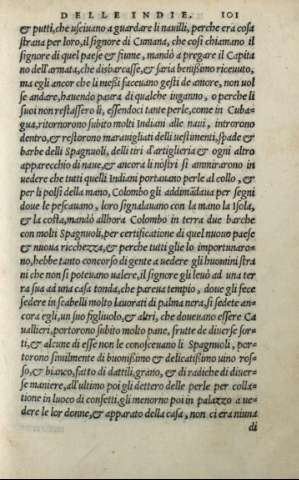 DELLE INDIE. 101
& putti, che uscivano a guardare li navilli, perche era cosa
strana per loro, il signore di Cumana, che cosi chiamano il
signore di quel paese & fiume, mandò a pregare il Capita
no dell'armata, che disbarcasse, & saria benissimo ricevuto,
ma egli ancor che li messi facevano gesti de amore, non vol
se andare, havendo paura di qualche inganno, o perche li
suoi non restassero li, essendoci tante perle, come in Cuba-
gua, ritornorono subito molti Indiani alle navi, introrono
dentro, & restorono maravigliati delli vestimenti, spade &
barbe delli Spagnoli, delli tiri d'artiglieria & ogni altro
apparecchio di nave, & ancora li nostri si ammirarono in
vedere che tutti quelli Indiani portavano perle al collo, &
per li polsi della mano, Colombo gli addimãdava per segni
dove le pescavano, loro signalavano con la mano la Isola,
& la costa, mandò allhora Colombo in terra due barche
con molti Spagnuoli, per certificatione di quel nuovo paese
& nuova ricchezza, & perche tutti glie lo importunaro-
no, hebbe tanto concorso di gente a veder gli huomini stra
ni che non si potevano valere, il signore gli levò ad una ter
ra sua ad una casa tonda, che pareva tempio, dove gli fece
sedere in scabelli molto lavorati di palma nera, si sedete an-
cora egli, un suo figliuolo, & altri, che dovevano essere Ca
vallieri, portorono subito molto pane, frutte de diverse sor-
ti, & alcune di esse non le conoscevano li Spagnuoli, por-
torono similmente di buonissimo & delicatissimo vino ros-
so, & bianco, fatto di dattili, grano, & di radiche di diver-
se maniere, all'ultimo poi gli dettero delle perle per colla-
tione in luoco di confetti, gli menorno poi in palazzo a ve-
dere le lor donne, & apparato della casa, non ci era niuna
di